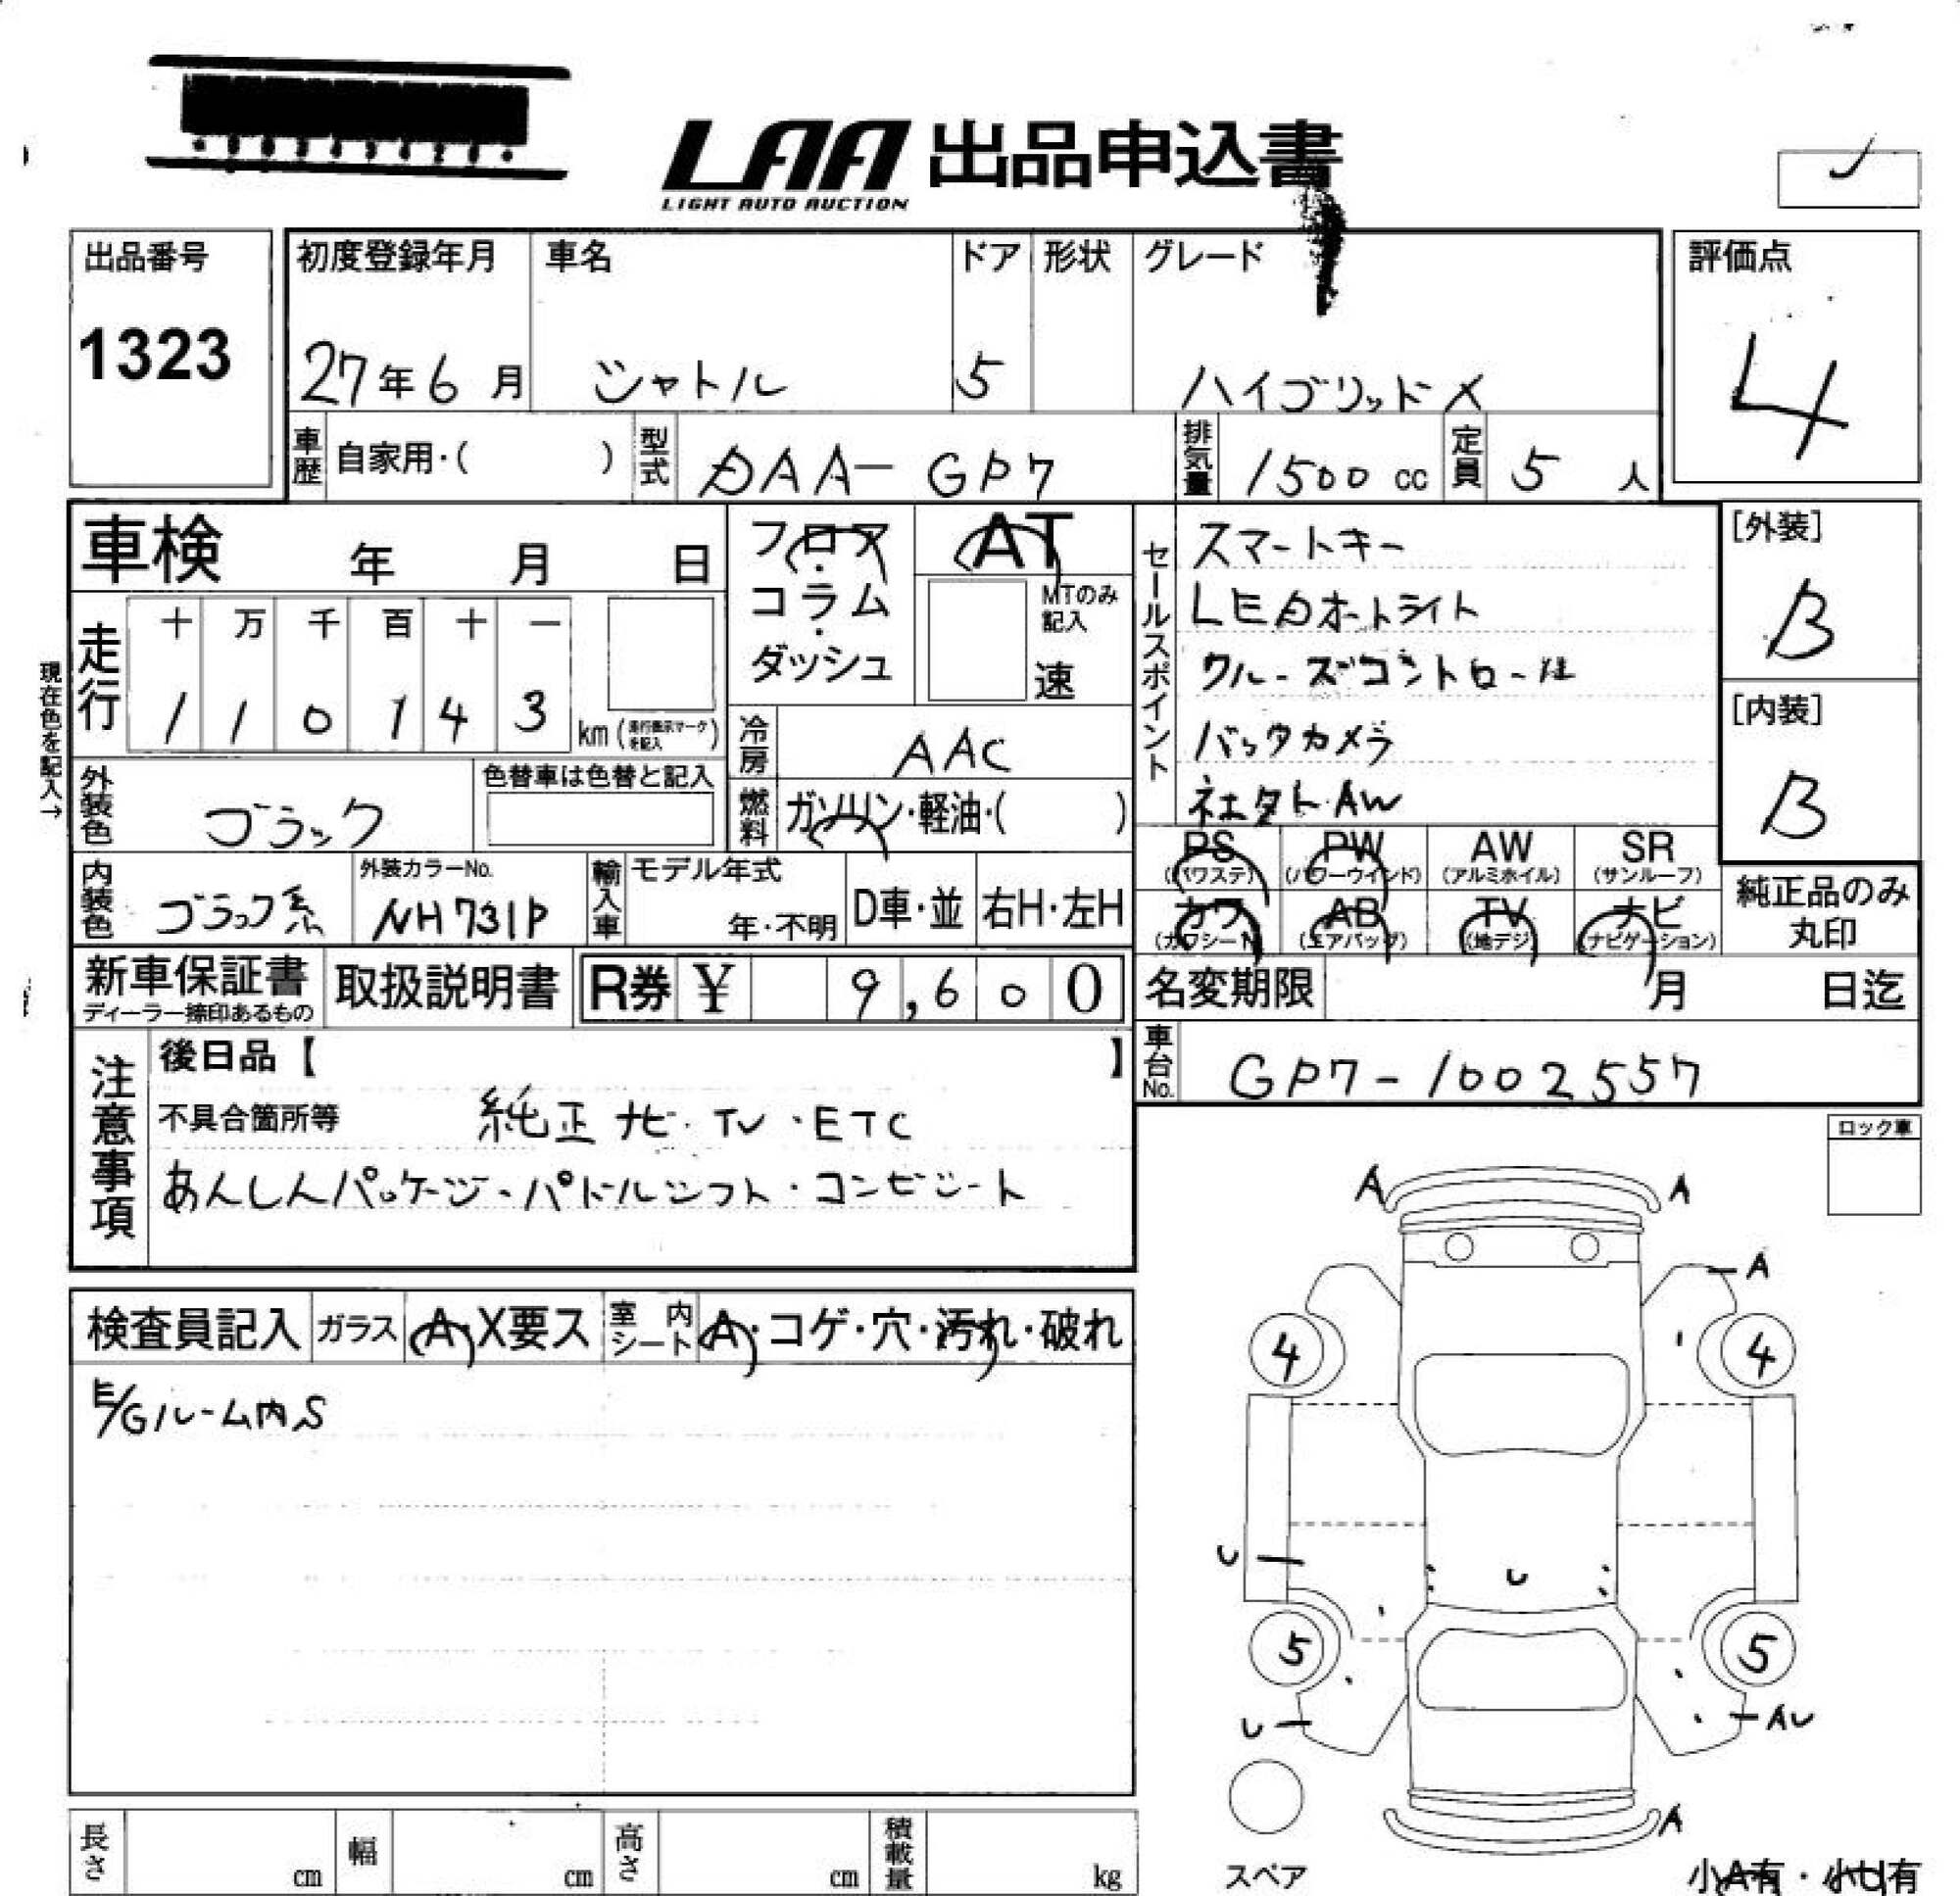 LAA 出品申込書
LIGHT AUTO AUCTION
出品番号
1323
初度登録年月 車名 ドア 形状 グレード
27年6月 シャトル 5 ハイブリッドX
評価点
4
車歴 自家用・( ) 型式 DAA-GP7 排気量 1500cc 定員 5人
車検 年 月 日
フロア・コラム・ダッシュ
AT
MTのみ記入
速
セールスポイント
スマートキー
LEDオートライト
クルーズコントロール
バックカメラ
社外AW
[外装]
B
[内装]
B
現在色を記入→
走行 十 万 千 百 十 一
1 1 0 1 4 3 km (走行表示マークを記入)
冷房 AAC
外装色 ブラック 色替車は色替と記入
燃料 ガソリン・軽油・( )
PS (パワステ) PW (パワーウインド) AW (アルミホイル) SR (サンルーフ)
カワ (カワシート) AB (エアバッグ) TV (地デジ) ナビ (ナビゲーション)
純正品のみ丸印
内装色 ブラック系 外装カラーNo. NH731P 輸入車 モデル年式 年・不明 D車・並 右H・左H
新車保証書 ディーラー捺印あるもの 取扱説明書 R券 ¥ 9,600
名変期限 月 日迄
車台No. GP7-1002557
注意事項
後日品【 】
不具合箇所等 純正ナビ・TV・ETC
あんしんパッケージ・パドルシフト・コンビシート
ロック車
検査員記入 ガラス A・X要ス 室内シート A・コゲ・穴・汚れ・破れ
E/Gルーム内S
A A
A
4 4
U U
5 5
U AU
A
スペア
小A有・小U有
長さ cm 幅 cm 高さ cm 積載量 kg